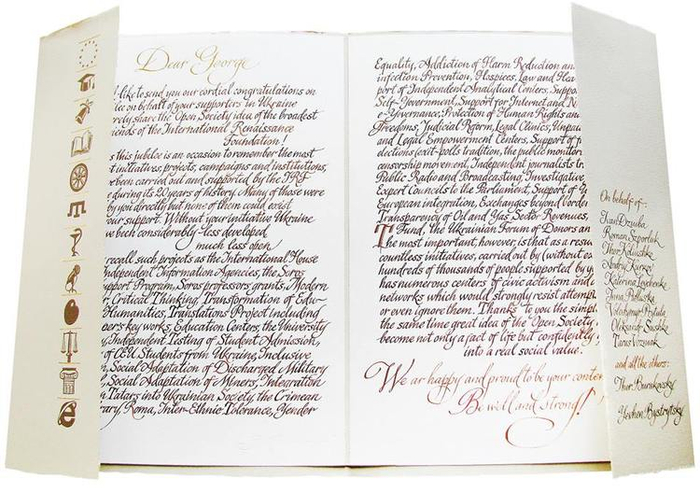 Dear George
like to send you our cordial congratulations on
on behalf of your supporters in Ukraine
rely share the Open Society idea of the broadest
iends of the International Renaissance
Foundation!
this jubilee is an occasion to remember the most
t initiatives, projects, campaigns and institutions,
been carried out and supported by the IRF
during its 20 years of history. Many of those were
by you directly but none of them could exist
our support. Without your initiative Ukraine
been considerably less developed
much less open
recall such projects as the International House
Independent Information Agencies, the Soros
upport Program, Soros professors grants, Modern
r, Critical Thinking, Transformation of Edu-
Humanities, Translations Project included
pers key works, Education Centers, the University
y, Independent Testing of Student Admission,
of CEU Students from Ukraine, Inclusive
n, Social Adaptation of Discharged Military
l, Social Adaptation of Myners, Integration
n Tatars into Ukrainian Society, the Crimean
rary, Roma, Inter-Ethnic Tolerance, Gender
Equality, Addiction of Harm Reduction an
infection Prevention, Hospices, Law and Hea
port of Independent Analytical Centers, Suppo
Self-Government, Support for Internet and N
r-Governance, Protection of Human Rights an
Freedoms, Judicial Reform, Legal Clinics, Unpai
and Legal Empowerment Centers, Support of f
dictions (exit-polls tradition, the public monitor
censorship movement, Independent journalists tr
Public Radio and Broadcasting, Investigative
Expert Councils to the Parliament, Support of y
European integration, Exchanges beyond border
Transparency of Oil and Gas Sector Revenues,
T Fund, the Ukrainian Forum of Donors an
The most important, however, is that as a resu
countless initiatives, carried out by (without ex
hundreds of thousands of people supported by y
has numerous centers of civic activism and
networks which would strongly resist attempt
or even ignore them. Thanks to you the simpl
the same time great idea of the Open Society
become not only a fact of life but confidently
into a real social value.
We ar happy and proud to be your conte
Be well and strong!
On behalf of:
Ivan Dzyuba
Roman Szporluk
Ihor Koliushko
Andriy Kurkov
Kateryna Levchenko
Inna Pidluska
Volodymyr Prytula
Oleksandr Sushko
Taras Vozniak
and all the others:
Ihor Burakovsky
Yevhen Bystrytsky